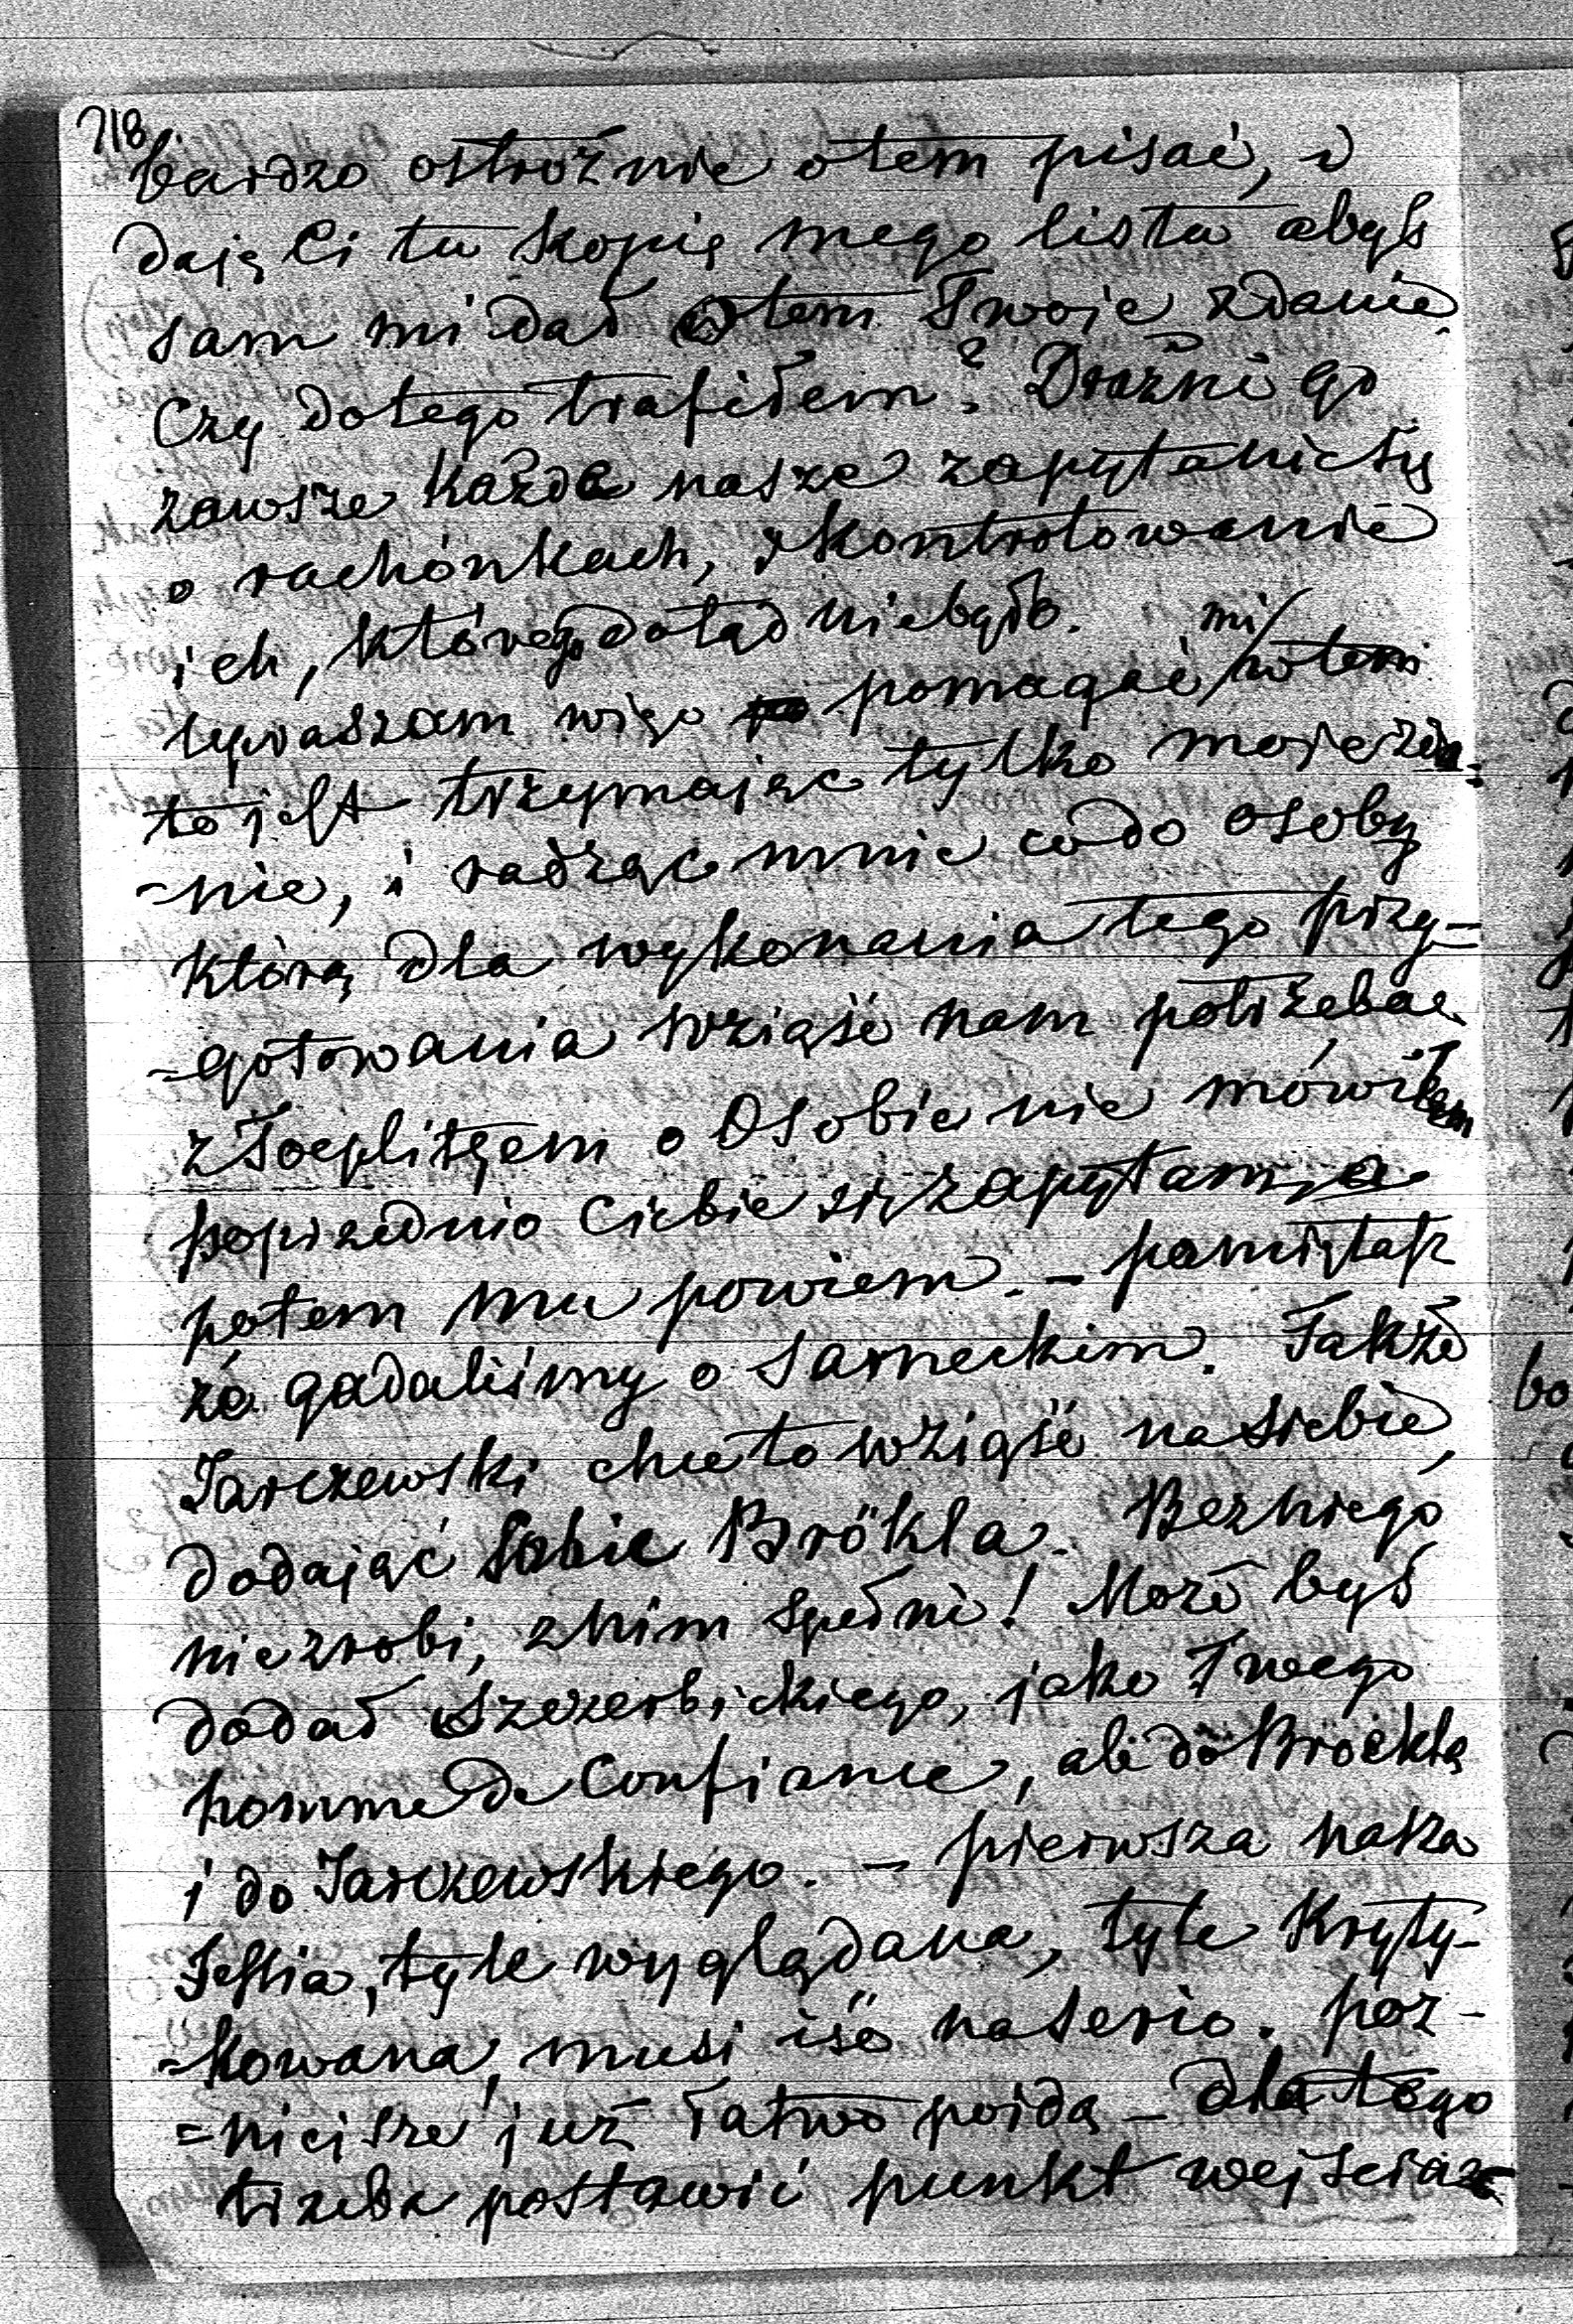 718
bardzo ostrożnie o tem pisać, i
dają Ci tu kopię mego listu abyś
sam mi dał o tem Twoje zdanie
Czy do tego trafiłem? Drażni go
zawsze każde nasze zapytanie się
o rachónkach, i kontrolowanie
ich, którego dotąd niebyło.
Upraszam więc pomagać mi w tem
to jest trzymając tylko moje zda=
=nie, i radząc mnie co do osoby
którą dla wykonania tego przy=
=gotowania wziąść nam potrzeba.
z Toeplitzem o Osobie nie mówiłem
poprzednio Ciebie się zapytam, a
potem mu powiem. – pamiętasz
że gadaliśmy o Sarneckim. Także
Jarczewski chce to wziąść na siebie,
dodając Sobie Brökla. Bez niego
nie zrobi, z nim spełni! Może byś
dodał Szczerbickiego, jako Twego
homme de Confiance, ale do Bröckla
i do Jarczewskiego. – pierwsza nasza
Sessia, tyle wyglądana, tyle Kryty-
=kowana, musi iść na serio. póz-
=niejsze już łatwo pójdą – dla tego
trzeba postawić punkt wejścia
bo